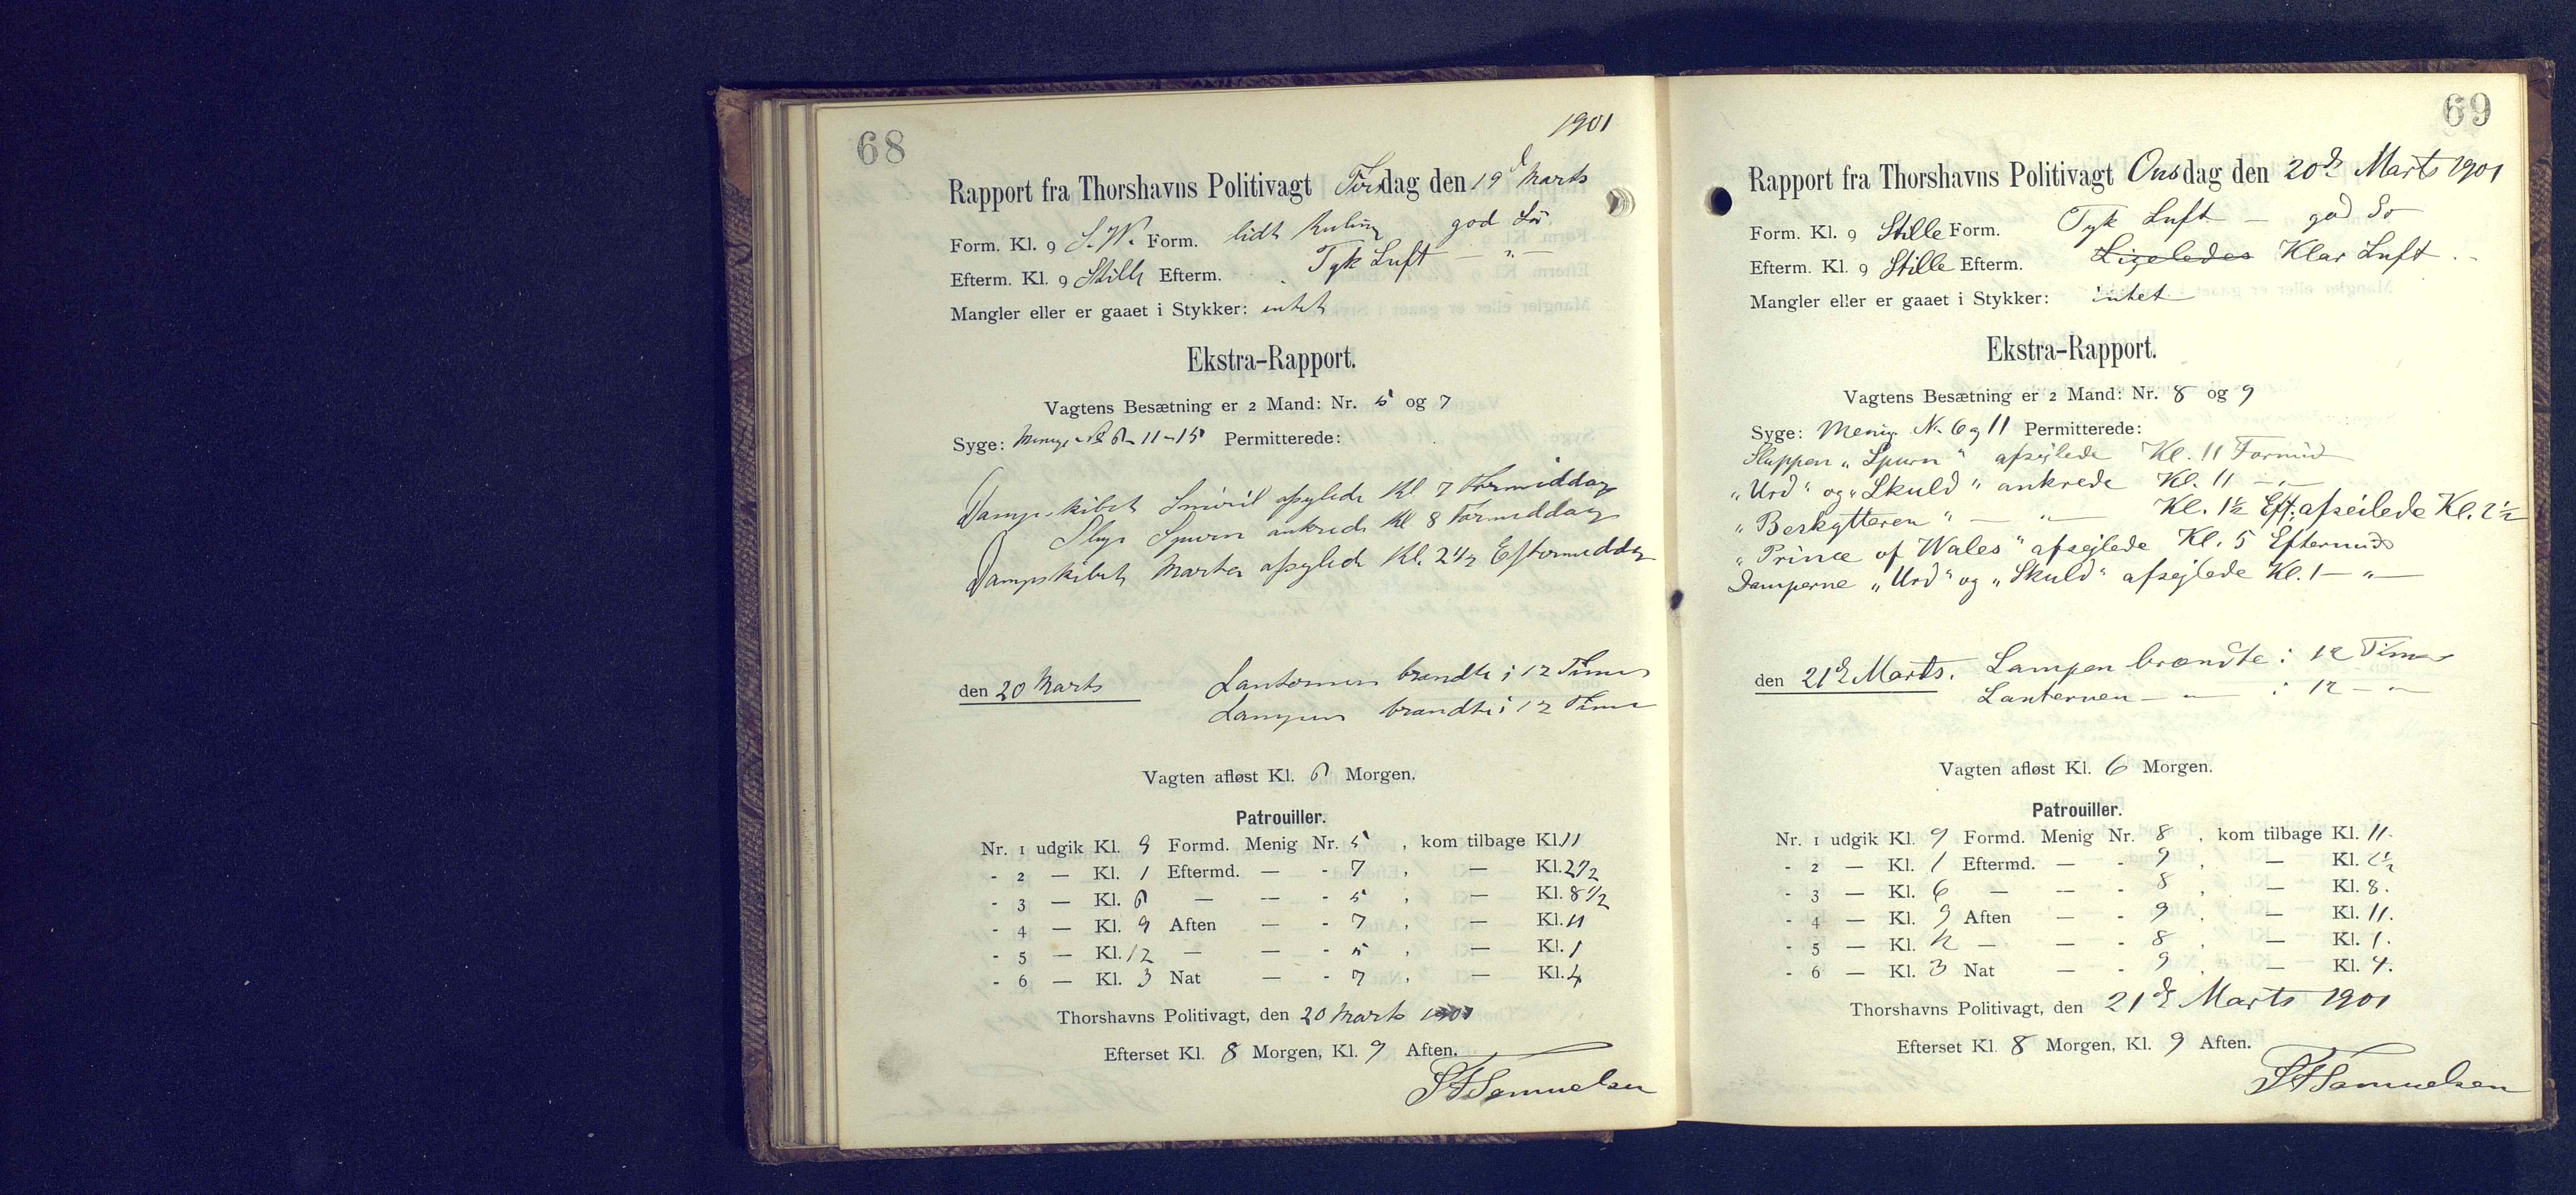 68
1901
Rapport fra Thorshavns Politivagt Tirsdag den 19d Marts
Form. Kl. 9 S.W. Form. lidt Kuling god Sø
Efterm. Kl. 9 Stille Efterm. Tyk Luft — " —
Mangler eller er gaaet i Stykker: intet
Ekstra-Rapport.
Vagtens Besætning er 2 Mand: Nr. 5 og 7
Syge: Menig No 6-11-15 Permitterede:
Dampskibet Smiril afsejlede Kl 7 Formiddag
Slup Spurn ankrede Kl 8 Formiddag
Dampskibet Marta afsejlede Kl. 2 1/2 Eftermiddag
den 20 Marts Lanternen brændte i 12 Timer
Lampen brændte i 12 Time
Vagten afløst Kl. 6 Morgen.
Patrouiller.
Nr. 1 udgik Kl. 9 Formd. Menig Nr. 5 , kom tilbage Kl. 11
- 2 — Kl. 1 Eftermd. — - 7 , — Kl. 2 1/2
- 3 — Kl. 6 — — - 5 , — Kl. 8 1/2
- 4 — Kl. 9 Aften — - 7 , — Kl. 11
- 5 — Kl. 12 — — - 5 , — Kl. 1
- 6 — Kl. 3 Nat — - 7 , — Kl. 4
Thorshavns Politivagt, den 20 Marts 1901
Efterset Kl. 8 Morgen, Kl. 9 Aften.
Samuelsen
69
Rapport fra Thorshavns Politivagt Onsdag den 20de Marts 1901
Form. Kl. 9 Stille Form. Tyk Luft — god Sø
Efterm. Kl. 9 Stille Efterm. Ligeledes Klar Luft . -
Mangler eller er gaaet i Stykker: intet
Ekstra-Rapport.
Vagtens Besætning er 2 Mand: Nr. 8 og 9
Syge: Menig No 6 og 11 Permitterede:
Sluppen „Spurn" afsejlede Kl. 11 Formid
„Urd" og „Skuld" ankrede Kl. 11 — " —
„Beskytteren" — " — Kl. 1½ Eft. afseilede Kl. 2½
„Prince of Wales" afsejlede Kl. 5 Eftermid
Damperne „Urd" og „Skuld" afsejlede Kl. 1 — " —
den 21de Marts. Lampen brændte i 12 Timer
Lanternen — " — i 12 — " —
Vagten afløst Kl. 6 Morgen.
Patrouiller.
Nr. 1 udgik Kl. 9 Formd. Menig Nr. 8 , kom tilbage Kl. 11.
- 2 — Kl. 1 Eftermd. — - 9 , — Kl. 2½
- 3 — Kl. 6 — — - 8 , — Kl. 8.
- 4 — Kl. 9 Aften — - 9 , — Kl. 11.
- 5 — Kl. 12 — — - 8 , — Kl. 1.
- 6 — Kl. 3 Nat — - 9 , — Kl. 4.
Thorshavns Politivagt, den 21de Marts 1901
Efterset Kl. 8 Morgen, Kl. 9 Aften.
Samuelsen